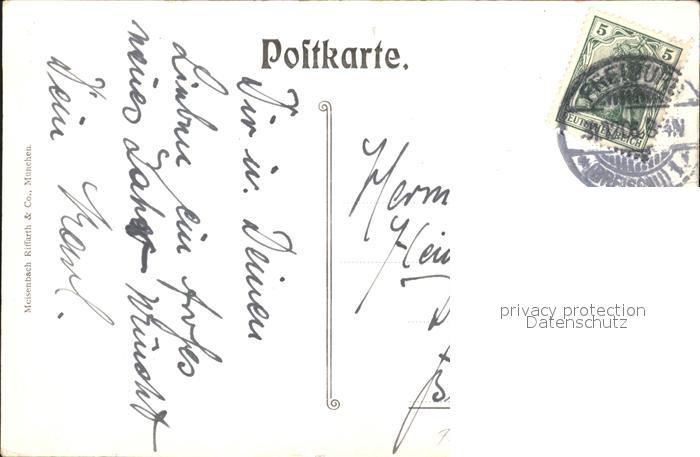 Postkarte.
Dir u. Deinen
Lieben ein frohes
neues Jahr wünscht
Dein Karl.
Meisenbach Riffarth & Co., München.
Herrn
5 5
DEUTSCHES REICH
FREIBURG
(BREISGAU)
privacy protection
Datenschutz